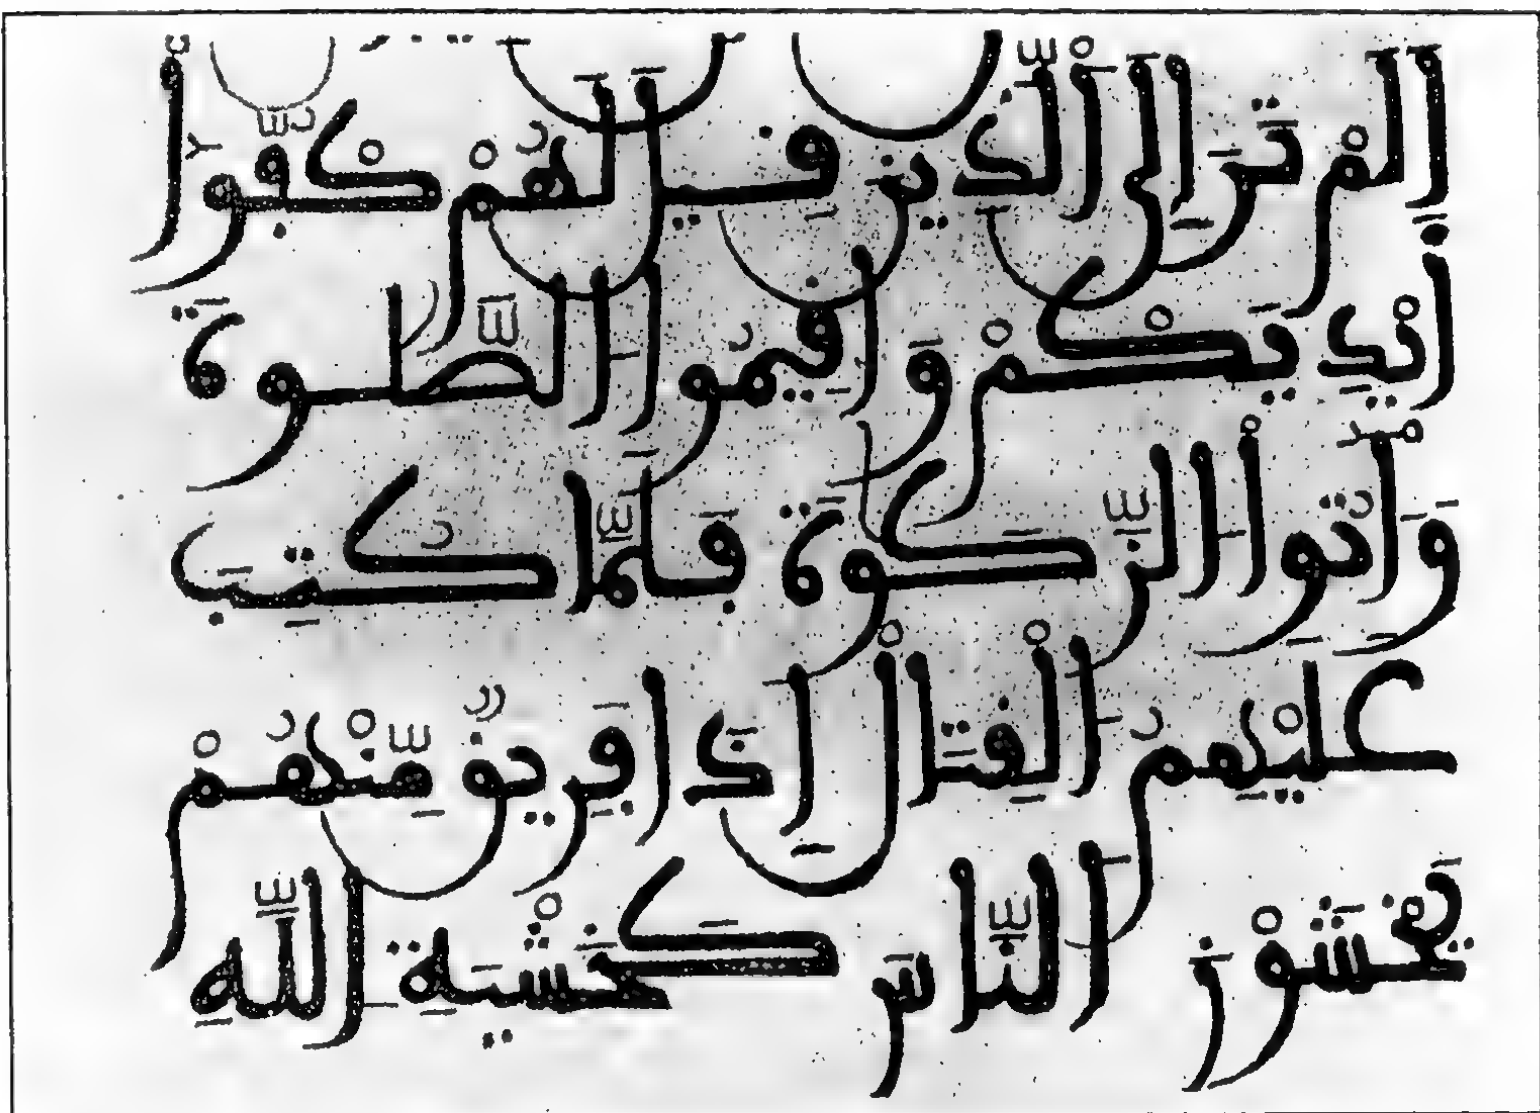 اَلَمْ تَرَ اِلَى اَ۬لذِينَ قِيلَ لَهُمْ كُفُّوٓاْ
أَيْدِيَكُمْ وَأَقِيمُواْ اَ۬لصَّلَوٰةَ
وَءَاتُواْ اَ۬لزَّكَوٰةَ فَلَمَّا كُتِبَ
عَلَيْهِمُ اَ۬لْقِتَالُ إِذَا فَرِيقٌ مِّنْهُمْ
يَخْشَوْنَ اَ۬لنَّاسَ كَخَشْيَةِ اِ۬للَّهِ